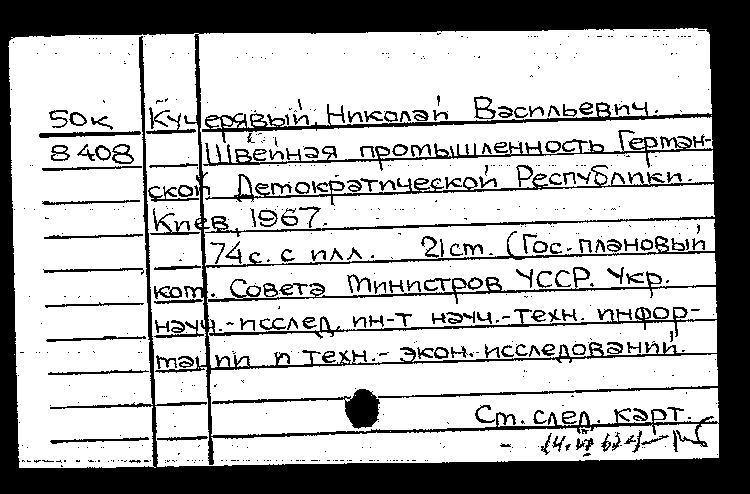 50к Кучерявый, Николай Васильевич.
8408 Швейная промышленность Герман-
ской Демократической Республики.
Киев, 1967.
74 с. с илл. 21 см. (Гос. плановый
ком. Совета Министров УССР. Укр.
науч.-исслед. ин-т науч.-техн. инфор-
мации и техн.-экон. исследований.
См. след. карт.